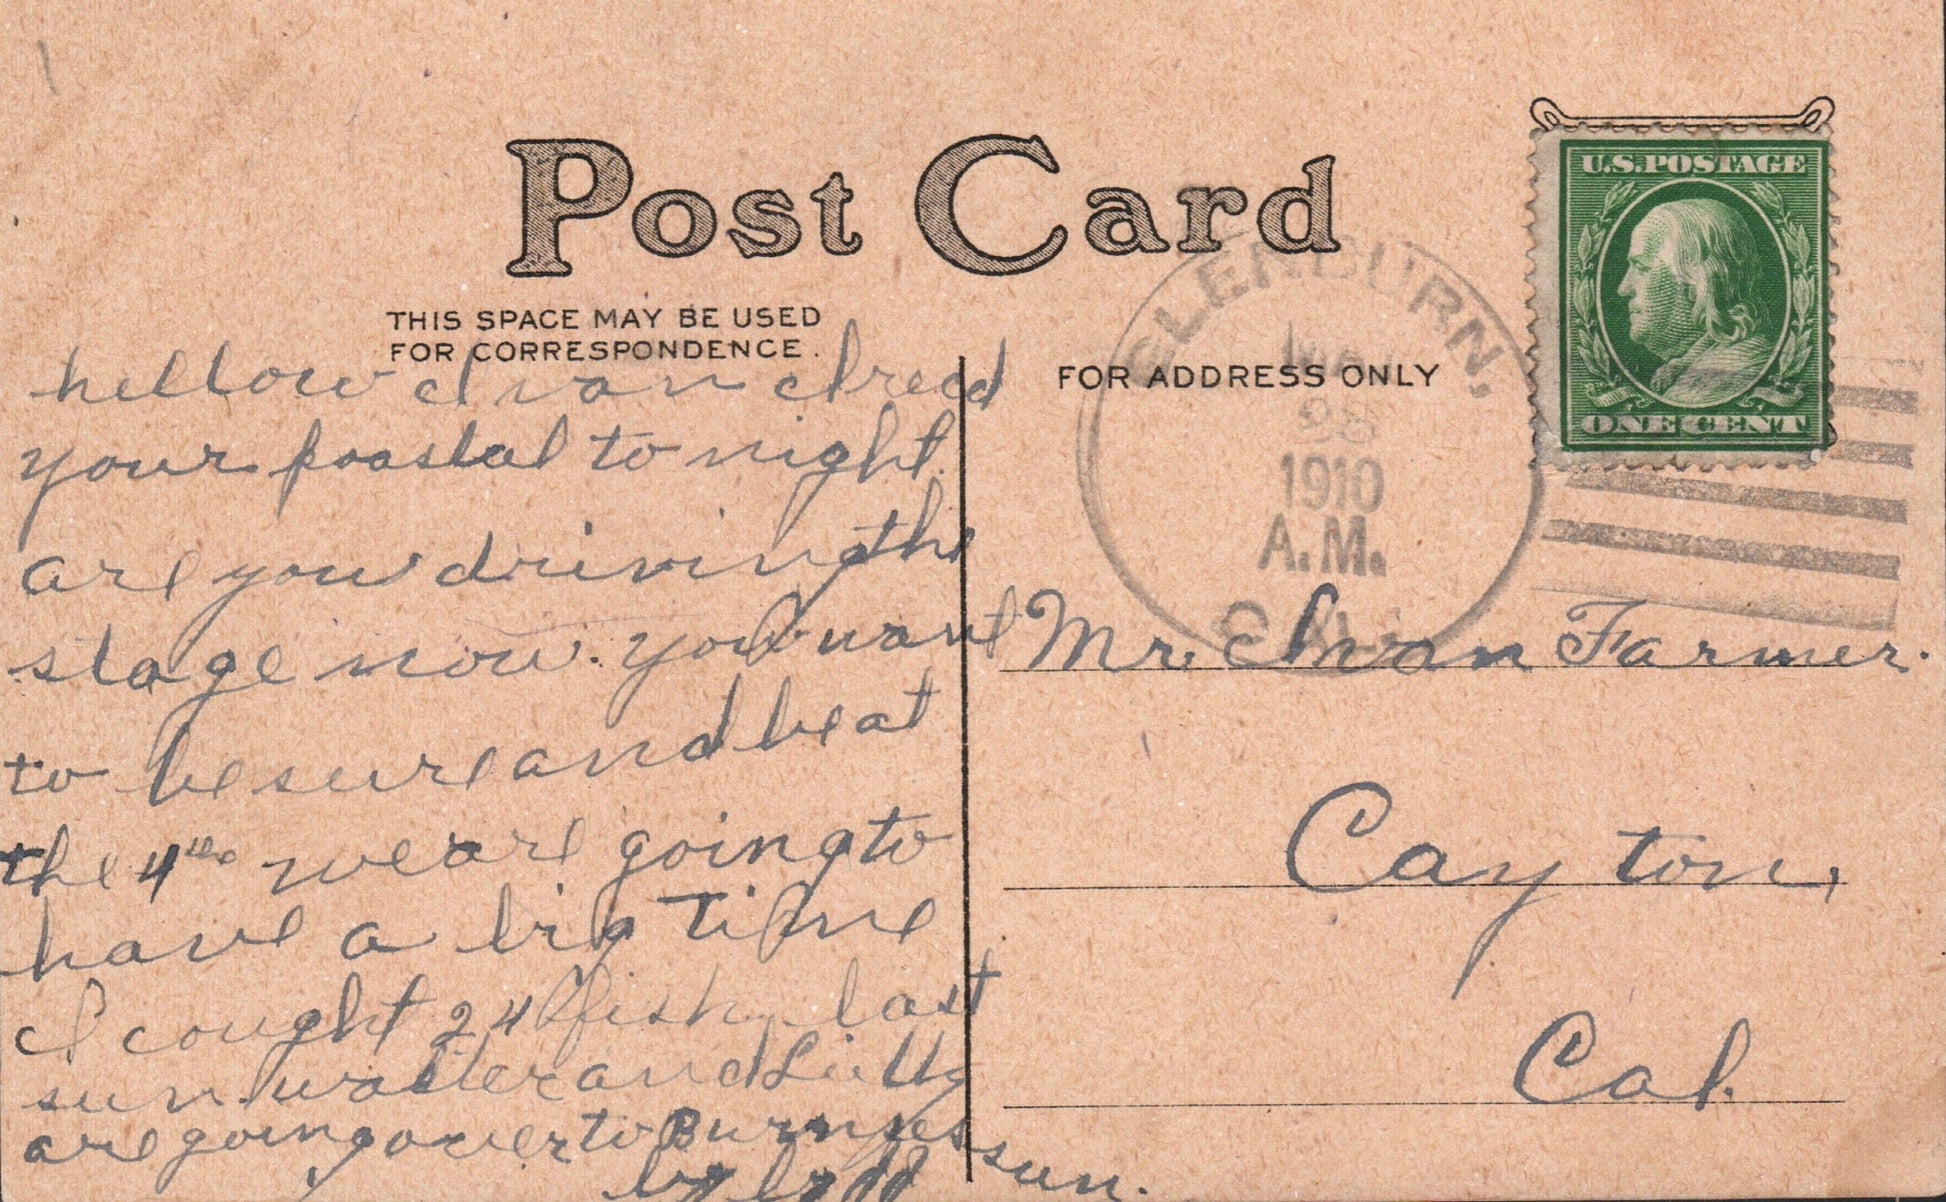 Post Card
THIS SPACE MAY BE USED
FOR CORRESPONDENCE.
FOR ADDRESS ONLY
U.S. POSTAGE
ONE CENT
GLENBURN,
MAY
1910
A.M.
CAL.
hellow Ivan I recd
your poastal to night.
are you driving the
stage now. you want
to be sure and be at
the 4th we are going to
have a big time
I cought 24 fish last
sun. walter and Lilly
are going over to Burnyes sun.
by
Mr. Ivan Farmer.
Cayton,
Cal.